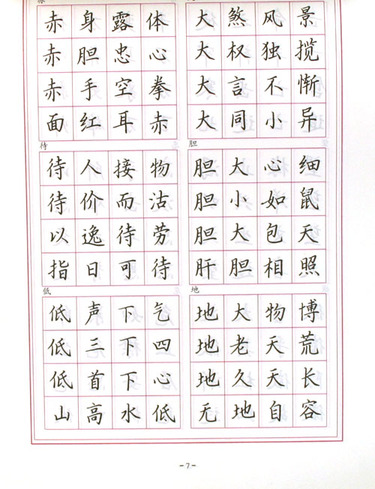 赤身露体
赤胆忠心
赤手空拳
面红耳赤
大煞风景
大权独揽
大言不惭
大同小异
待
待人接物
待价而沽
以逸待劳
指日可待
胆
胆大心细
胆小如鼠
胆大包天
肝胆相照
低
低声下气
低三下四
低首下心
山高水低
地
地大物博
地老天荒
地久天长
无地自容
-7-